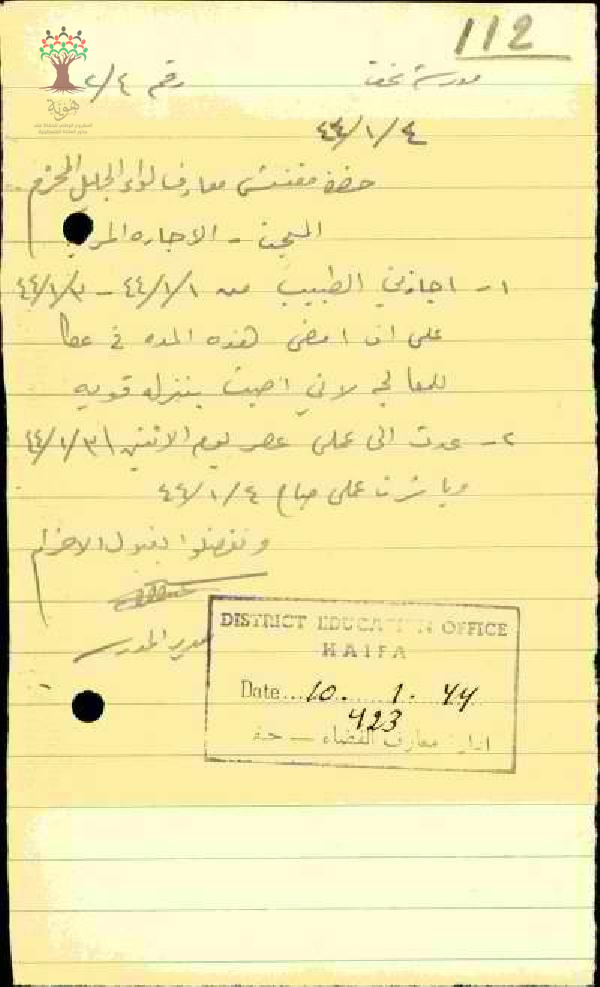 112
مدرسة نحف
رقم ٢/٤
هوية
٤٤/١/٤
حضرة مفتش معارف لواء الجليل المحترم
المبحث - الاجازه المرضية
١- اجازني الطبيب من ٤٤/١/١ - ٤٤/١/٣
على ان امضي هذه المده في عكا
للمعالجه لاني اصبت بنزله قويه
٢- عدت الى عملي عصر يوم الاثنين ٤٤/١/٣
وباشرت عملي صباح ٤٤/١/٤
وتفضلوا بقبول الاحترام
مدير المدرسة
DISTRICT EDUCATION OFFICE
HAIFA
Date... 10. 1. 44
423
ادارة معارف القضاء — حيفا